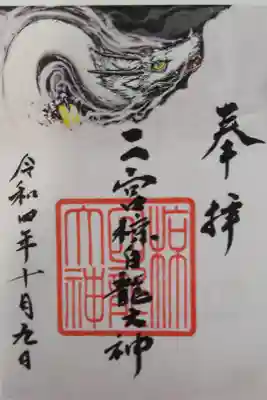 奉拝
二宮椋白龍大神
令和四年十月九日
椋
白龍
大神